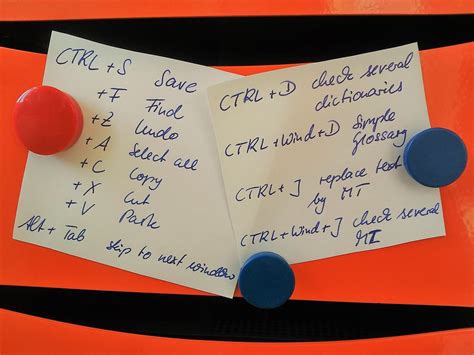 CTRL + S Save
+ F Find
+ Z Undo
+ A Select all
+ C Copy
+ X Cut
+ V Paste
Alt + Tab skip to next window
CTRL + D check several
dictionaries
CTRL + Wind + D Simple
Glossary
CTRL + J replace text
by MT
CTRL + Wind + J check several
MT